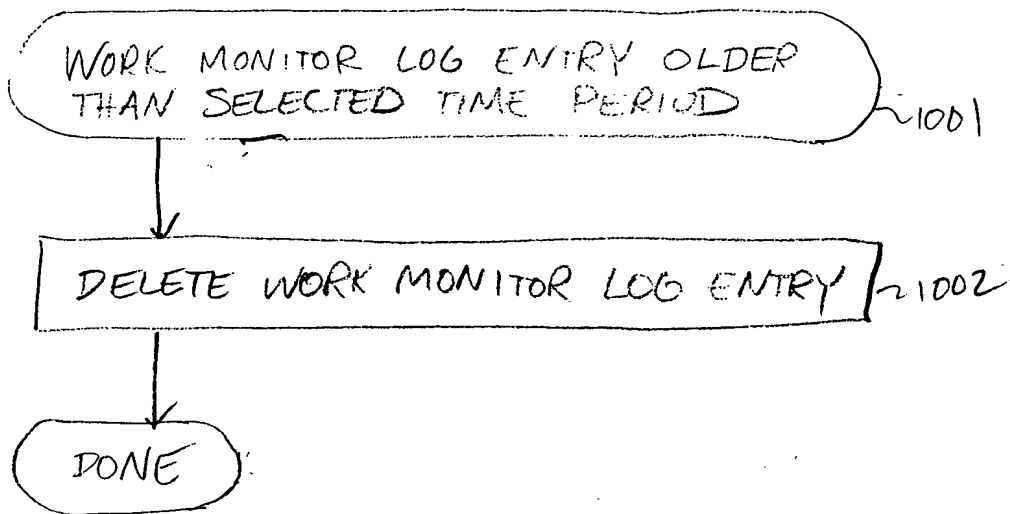 WORK MONITOR LOG ENTRY OLDER
THAN SELECTED TIME PERIOD
1001
DELETE WORK MONITOR LOG ENTRY
1002
DONE